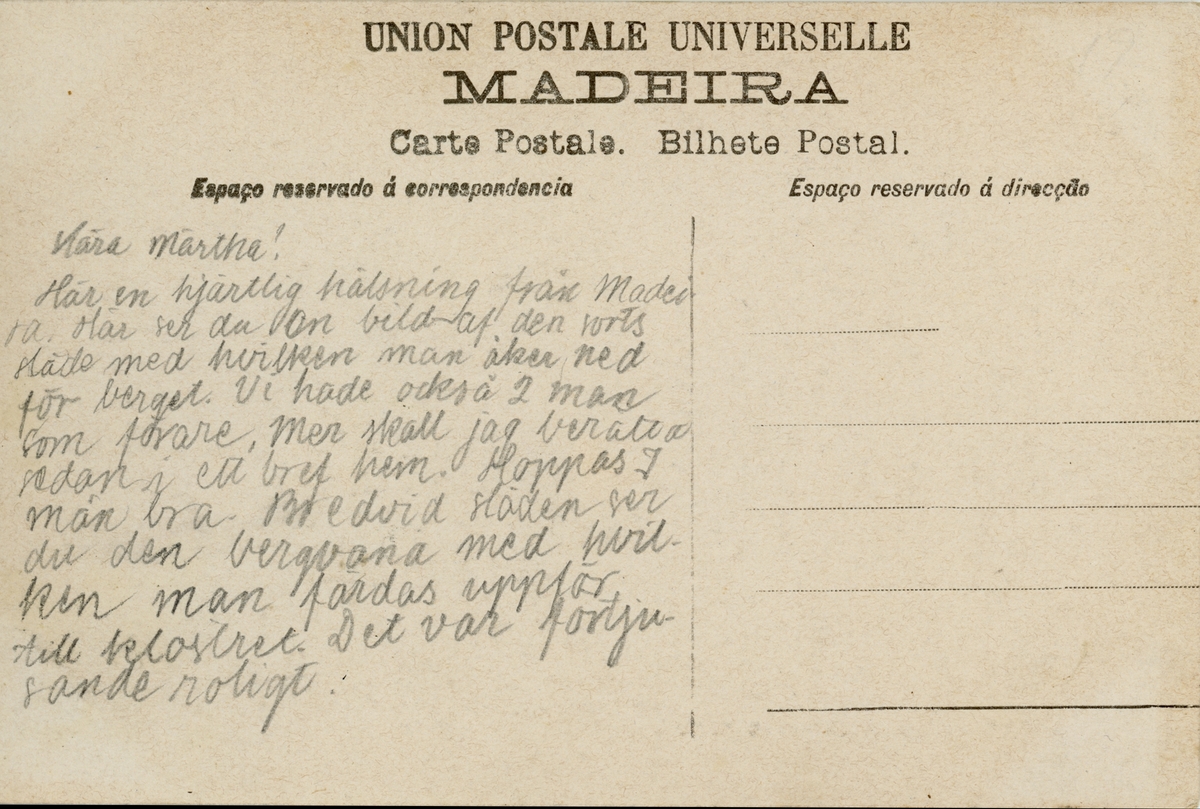 UNION POSTALE UNIVERSELLE
MADEIRA
Carte Postale. Bilhete Postal.
Espaço reservado á correspondencia
Espaço reservado á direcção
Kära Märtha!
Här en hjärtlig hälsning från Madei-
ra. Här ser du en bild af den sorts
släde med hvilken man åker ned
för berget. Vi hade också 2 man
som förare. Mer skall jag berätta
sedan i ett bref hem. Hoppas I
mån bra. Bredvid släden ser
du den bergvana med hvil-
ken man färdas uppför
till klostret. Det var förtju-
sande roligt.